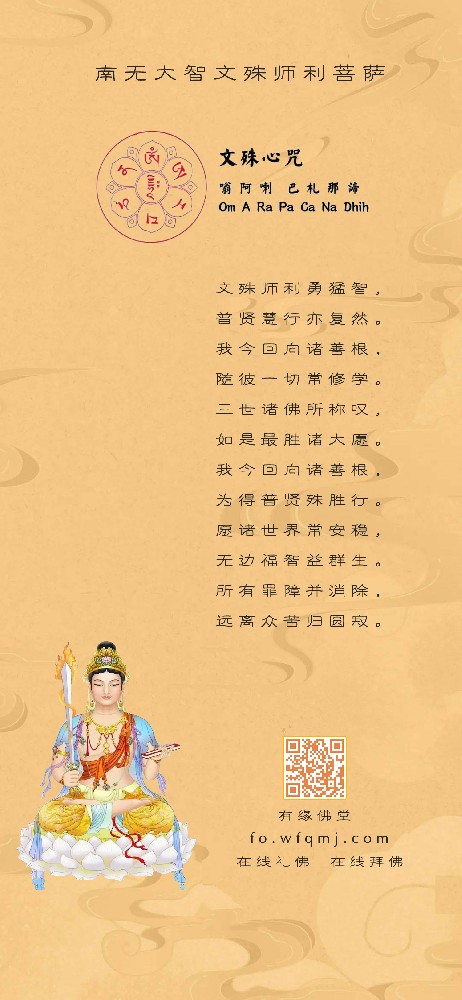 南无大智文殊师利菩萨
文殊心咒
嗡阿喇 巴札那谛
Om A Ra Pa Ca Na Dhih
文殊师利勇猛智，
普贤慧行亦复然。
我今回向诸善根，
随彼一切常修学。
三世诸佛所称叹，
如是最胜诸大愿。
我今回向诸善根，
为得普贤殊胜行。
愿诸世界常安稳，
无边福智益群生。
所有罪障并消除，
远离众苦归圆寂。
有缘佛堂
fo.wfqmj.com
在线礼佛 在线拜佛